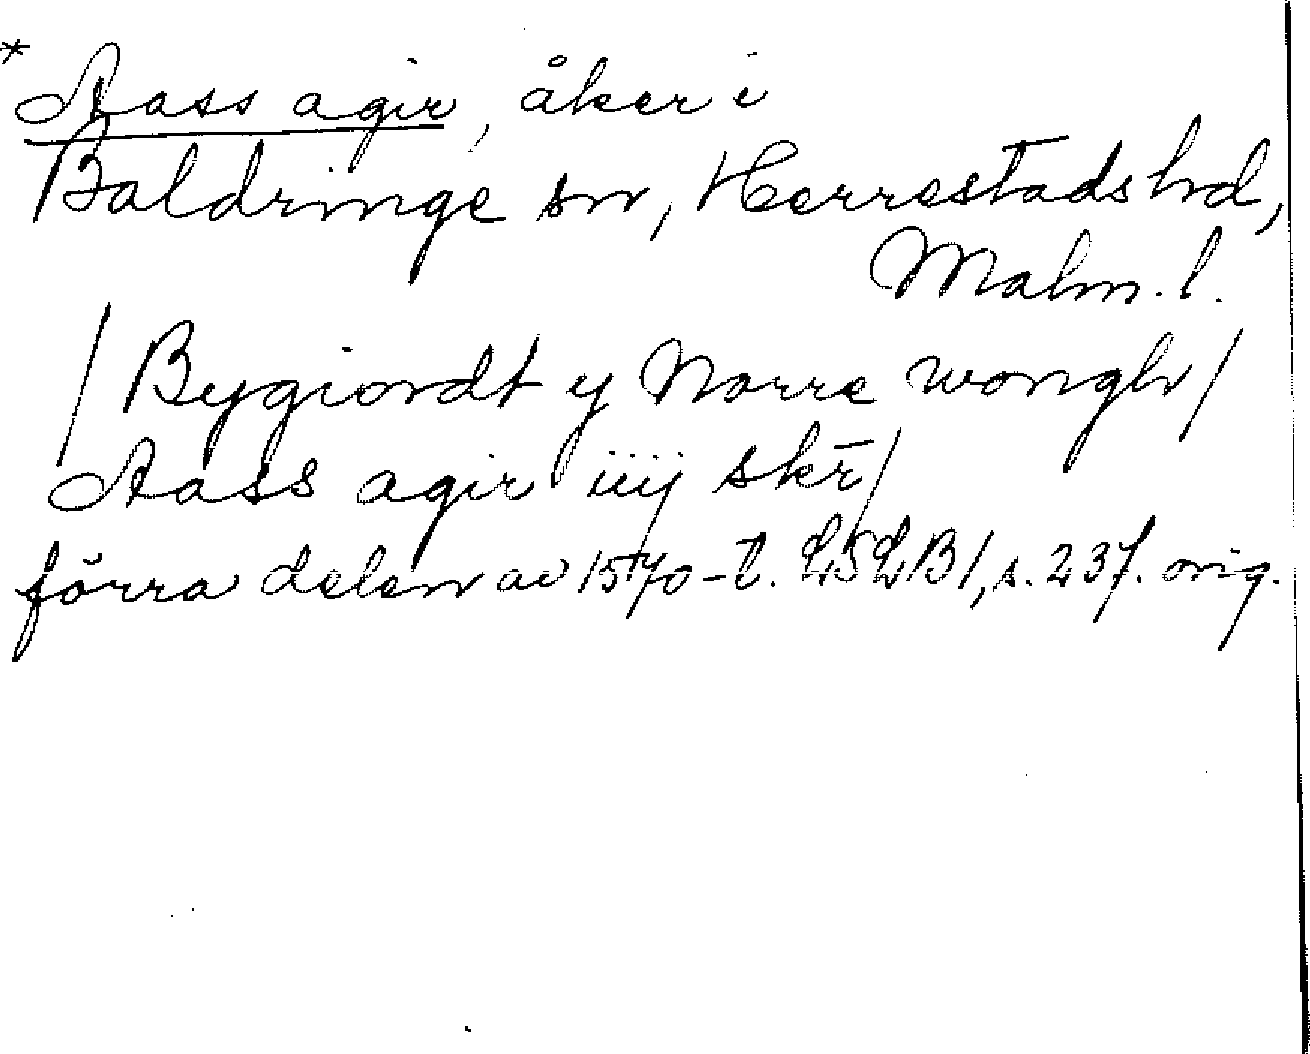 *
Aass agir, åker i
Baldringe sn, Herrestads hd,
Malm. l.
/ Bygiordt y Norre wongh /
Aass agir iiij skr̄ /
förra delen av 1570-t. LSLB1, s. 237. orig.